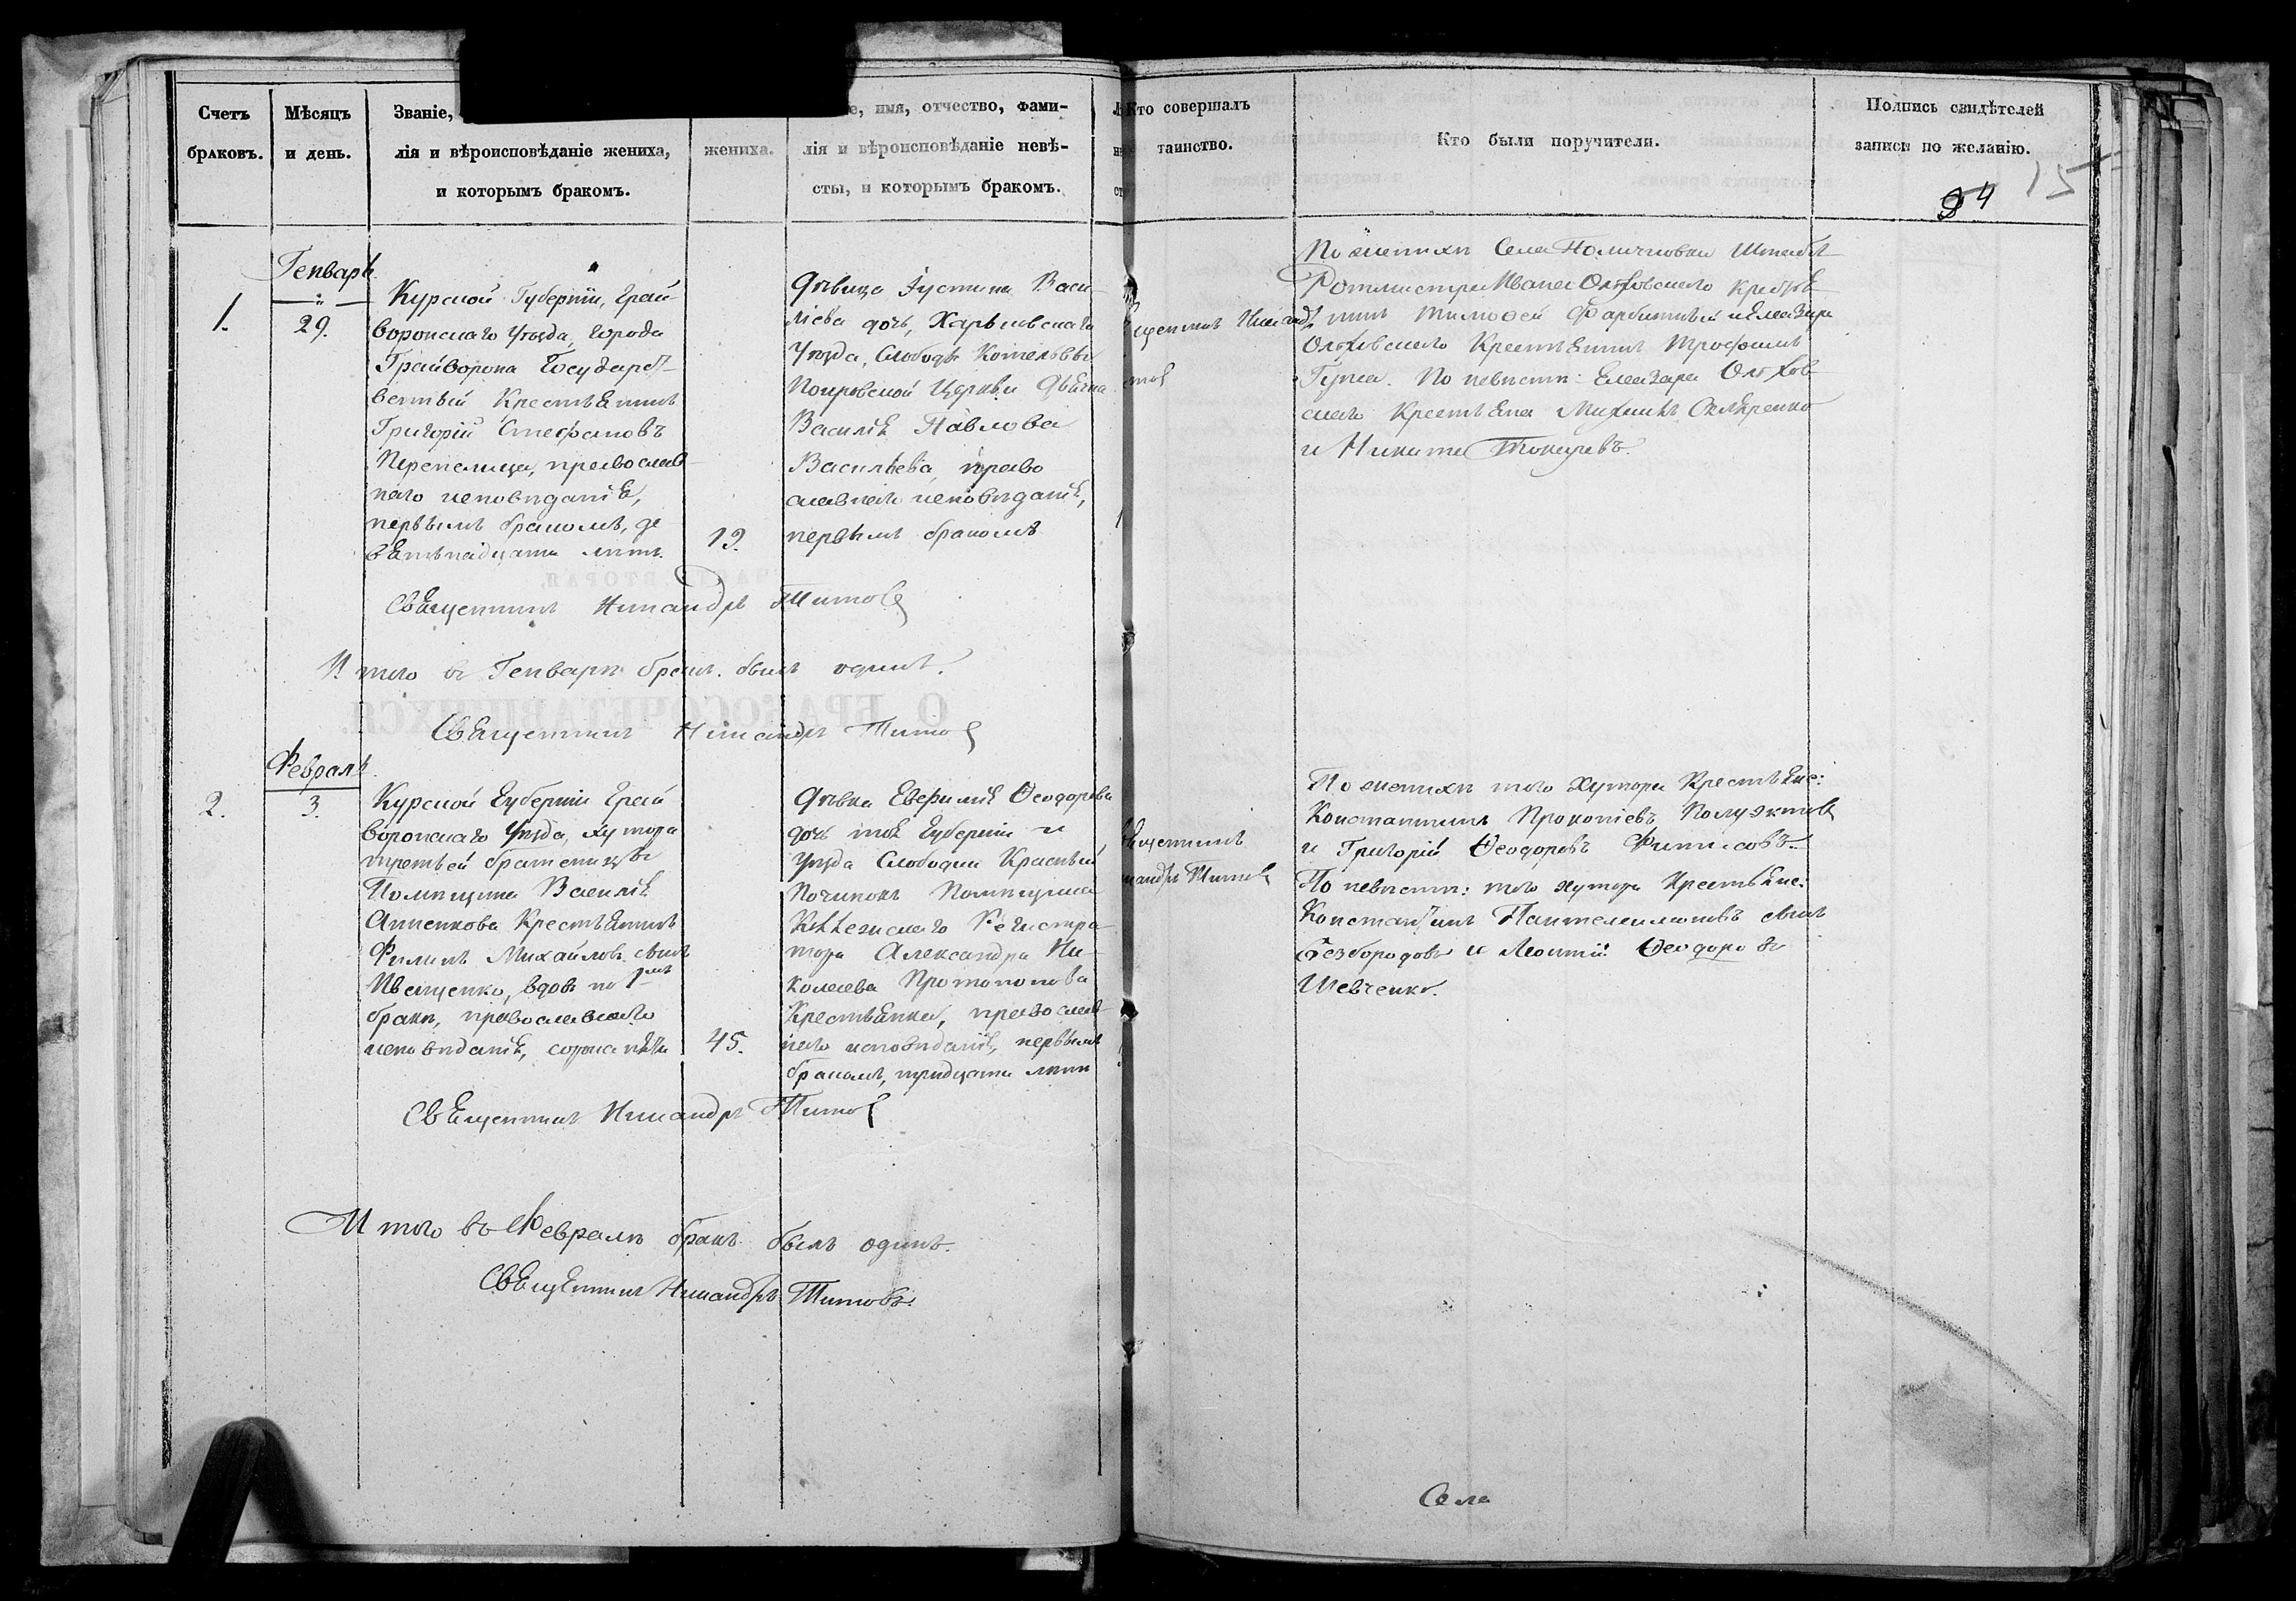 Счетъ
браковъ.
Мѣсяцъ
и день.
Званіе,
лія и вѣроисповѣданіе жениха,
и которымъ бракомъ.
жениха.
имя, отчество, фами-
лія и вѣроисповѣданіе невѣ-
сты, и которымъ бракомъ.
Кто совершалъ
таинство.
Кто были поручители.
Подпись свидѣтелей
записи по желанію.
15
4
Генварь
1.
29.
Курской Губерніи, Грай-
воронскаго Уѣзда, города
Грайворона Государст-
венный Крестьянинъ
Григорій Стефановъ
Перепелица, православ-
наго исповѣданія,
первымъ бракомъ, де
вятнадцати лѣтъ.
19.
Дѣвица Іустина Васи-
ліева дочь, Харьковскаго
Уѣзда, Слободы Котельвы
Покровской Церкви Дьячка
Василія Павлова
Васильева, право
славнаго исповѣданія,
первымъ бракомъ
щенникъ Никандръ
товъ
По женихѣ Села Штабъ
Ротмистра Ивана Ольховскаго Кресть
нинъ Тимофей и Елеазара
Ольховскаго Крестьянинъ Трофимъ
По невѣстѣ: Елеазара Ольхов
скаго Крестьяна Михаилъ
и Никита
Священникъ Никандръ Титовъ
Итого въ Генварѣ бракъ былъ одинъ.
Священникъ Никандръ Титовъ
Февраль
2.
3.
Курской Губерніи Грай
воронскаго Уѣзда, хутора
Помѣщика Василія
Анненкова Крестьянинъ
Филипъ Михайловъ сынъ
Иващенко, вдовъ по 1мъ
бракѣ, православнаго
исповѣданія, сорока пяти
45.
Дѣвка Евфимія Ѳеодорова
дочь той Губерніи и
Уѣзда Слободки Красный
Починокъ Помѣщика
Коллежскаго Регистра-
тора Александра Ни-
колаева Протопопова
Крестьянка, православ-
наго исповѣданія, первымъ
бракомъ, тридцати лѣтъ
ященникъ
кандръ Титовъ
По женихѣ того Хутора Крестьяне:
Константинъ Прокопіевъ Полуэктовъ
и Григорій Ѳеодоровъ
По невѣстѣ: того хутора Крестьяне:
Константинъ Пантелеимоновъ сынъ
Безбородовъ и Леонтій Ѳеодоровъ
Шевченко.
Священникъ Никандръ Титовъ
Итого въ Февралѣ бракъ былъ одинъ.
Священникъ Никандръ Титовъ.
Села